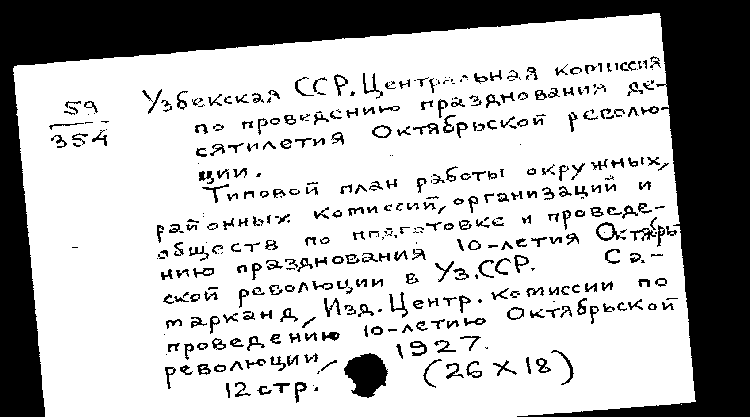 59
354
Узбекская ССР. Центральная комиссия
по проведению празднования де-
сятилетия Октябрьской револю-
ции.
Типовой план работы окружных,
районных комиссий, организаций и
обществ по подготовке и проведе-
нию празднования 10-летия Октябрь-
ской революции в Уз.ССР. Са-
марканд, Изд. Центр. комиссии по
проведению 10-летию Октябрьской
революции, 1927.
12 стр. (26 X 18)